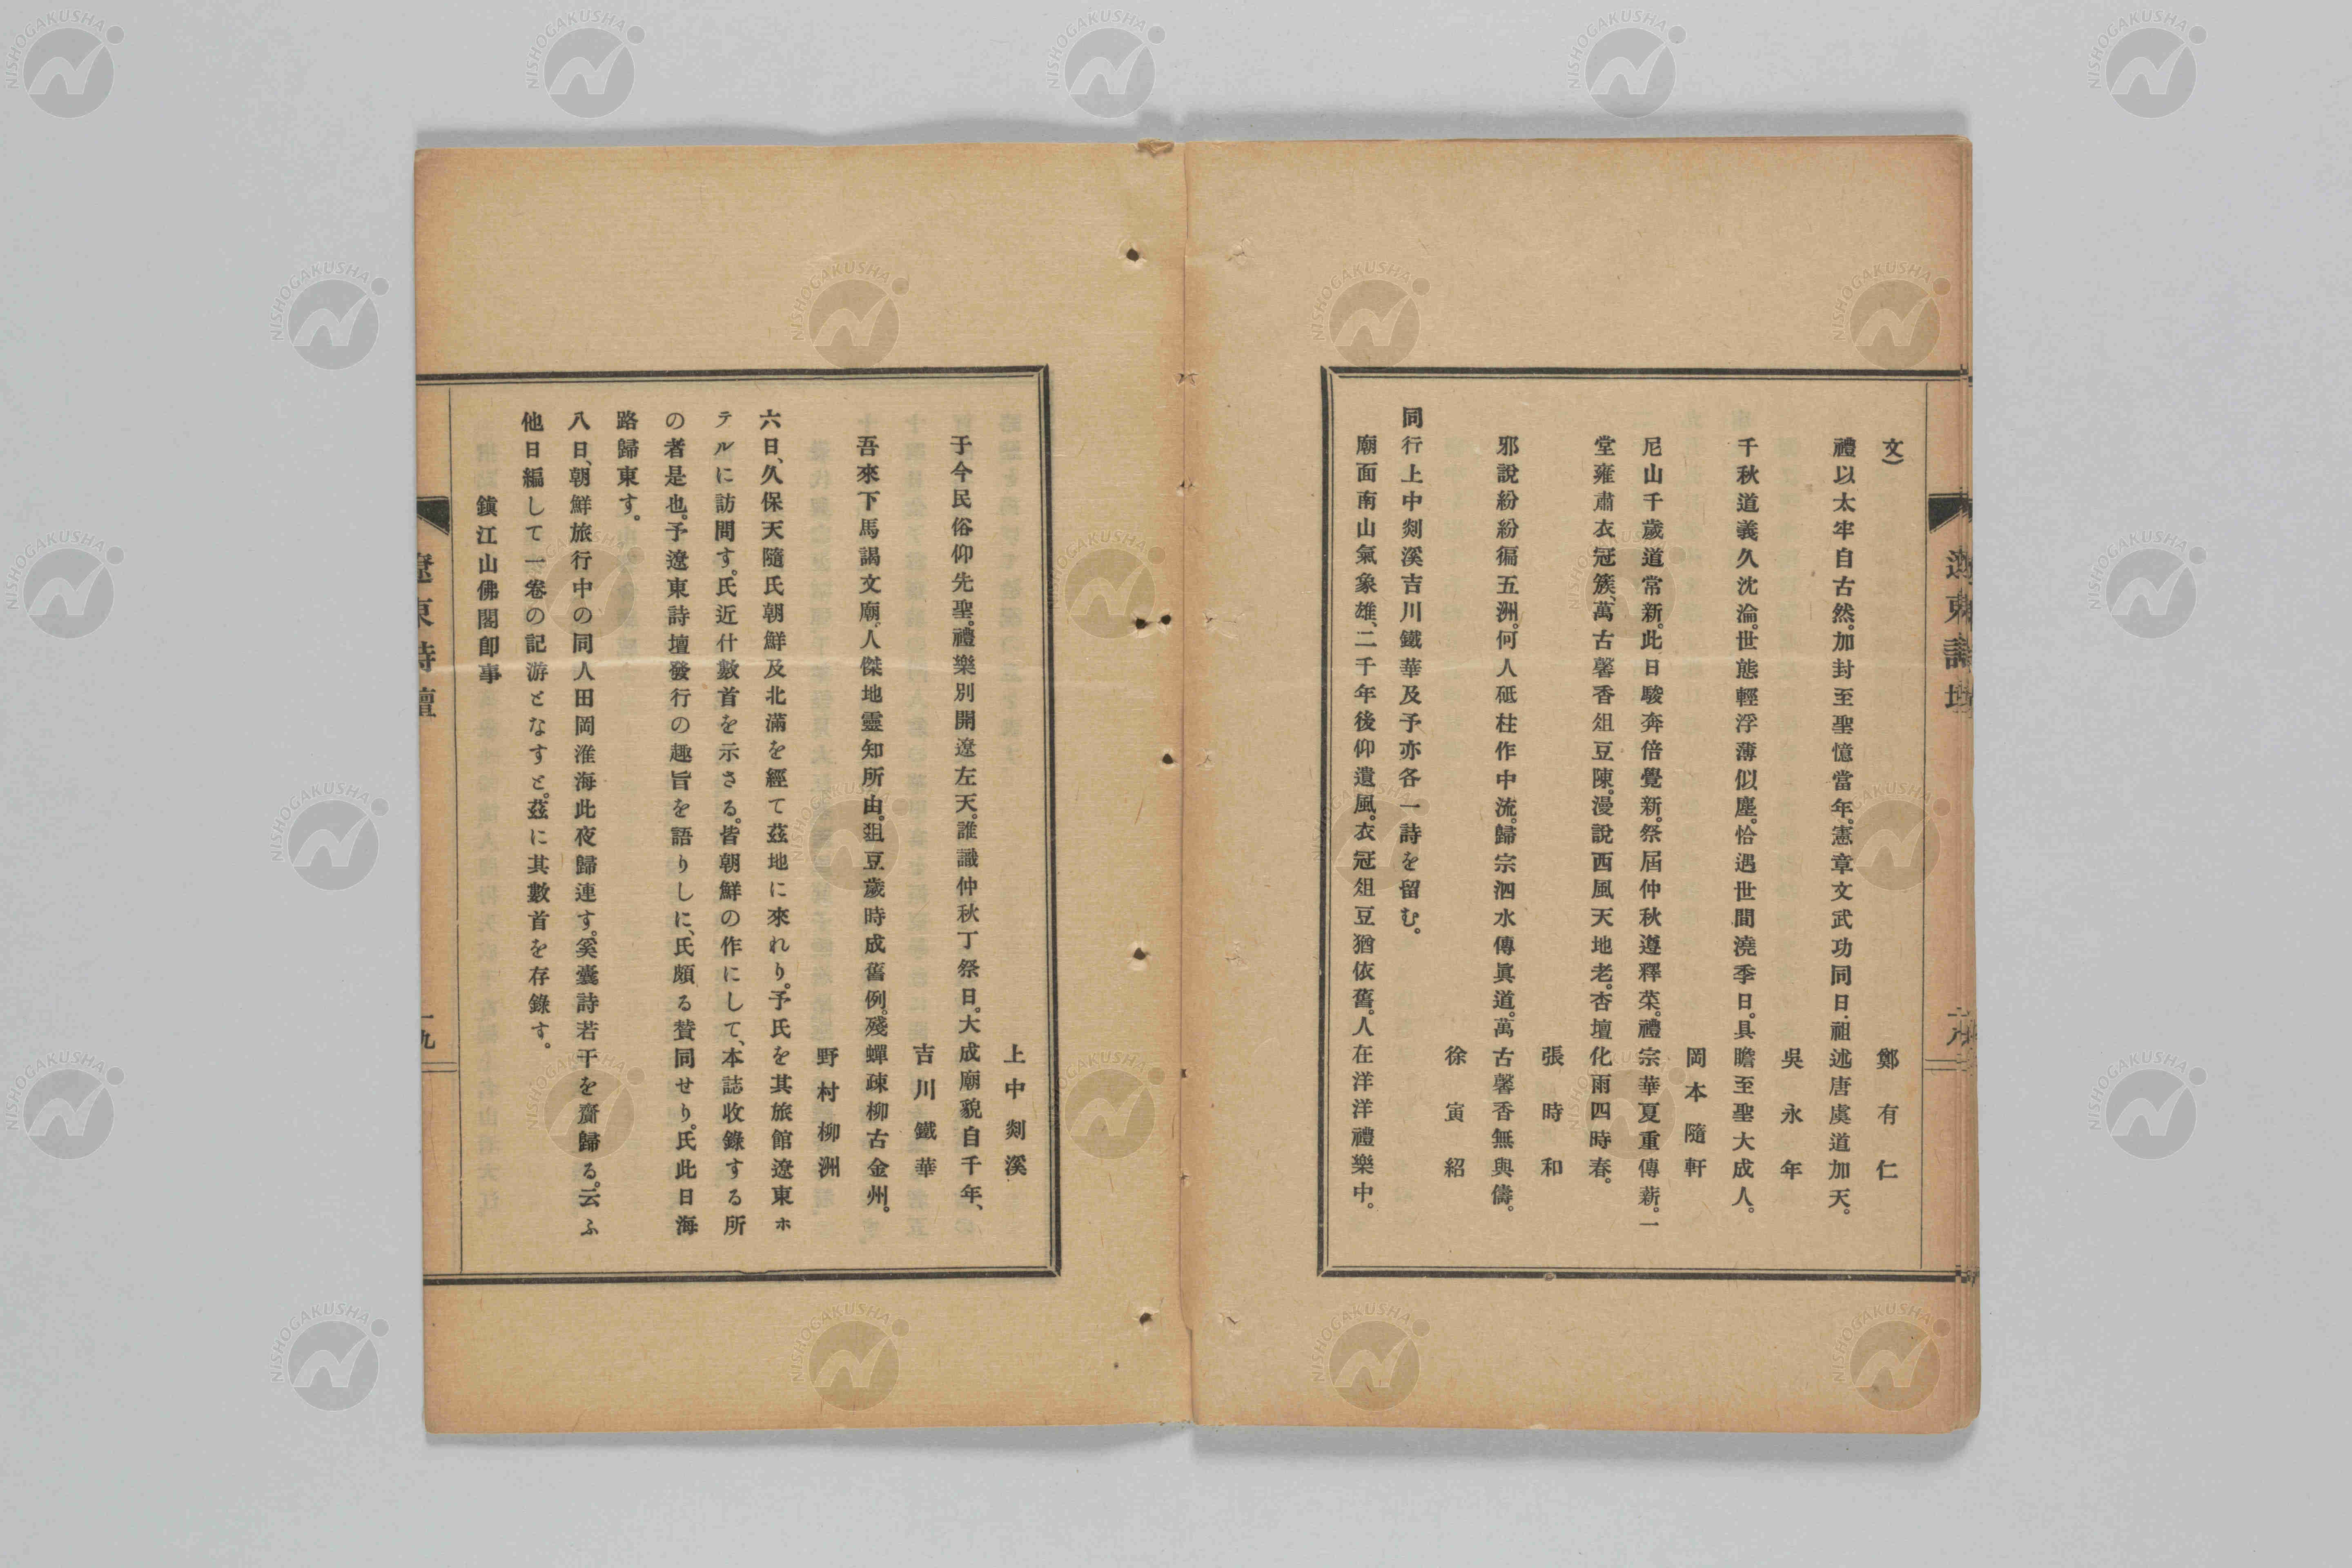 文）
鄭有仁
禮以太牢自古然。加封至聖憶當年。憲章文武功同日。祖述唐虞道加天。
吳永年
千秋道義久沈淪。世態輕浮薄似塵。恰遇世間澆季日。具瞻至聖大成人。
岡本隨軒
尼山千歲道常新。此日駿奔倍覺新。祭屆仲秋遵釋菜。禮宗華夏重傳薪。一
堂雍肅衣冠簇、萬古馨香俎豆陳。漫說西風天地老。杏壇化雨四時春。
張時和
邪說紛紛徧五洲。何人砥柱作中流。歸宗泗水傳眞道。萬古馨香無與儔。
徐寅紹
同行上中剡溪吉川鐵華及予亦各一詩を留む。
廟面南山氣象雄、二千年後仰遺風。衣冠俎豆猶依舊。人在洋洋禮樂中。
遼東詩壇
上中剡溪
于今民俗仰先聖。禮樂別開遼左天。誰識仲秋丁祭日。大成廟貌自千年、
吉川鐵華
吾來下馬謁文廟、人傑地靈知所由。俎豆歲時成舊例。殘蟬疎柳古金州。
野村柳洲
六日、久保天隨氏朝鮮及北滿を經て茲地に來れり。予氏を其旅館遼東ホ
テルに訪問す。氏近什數首を示さる。皆朝鮮の作にして、本誌收錄する所
の者是也。予遼東詩壇發行の趣旨を語りしに、氏頗る贊同せり。氏此日海
路歸東す。
八日、朝鮮旅行中の同人田岡淮海此夜歸連す。奚囊詩若干を齎歸る。云ふ
他日編して一卷の記游となすと。茲に其數首を存錄す。
鎭江山佛閣卽事
遼東詩壇
NISHOGAKUSHA